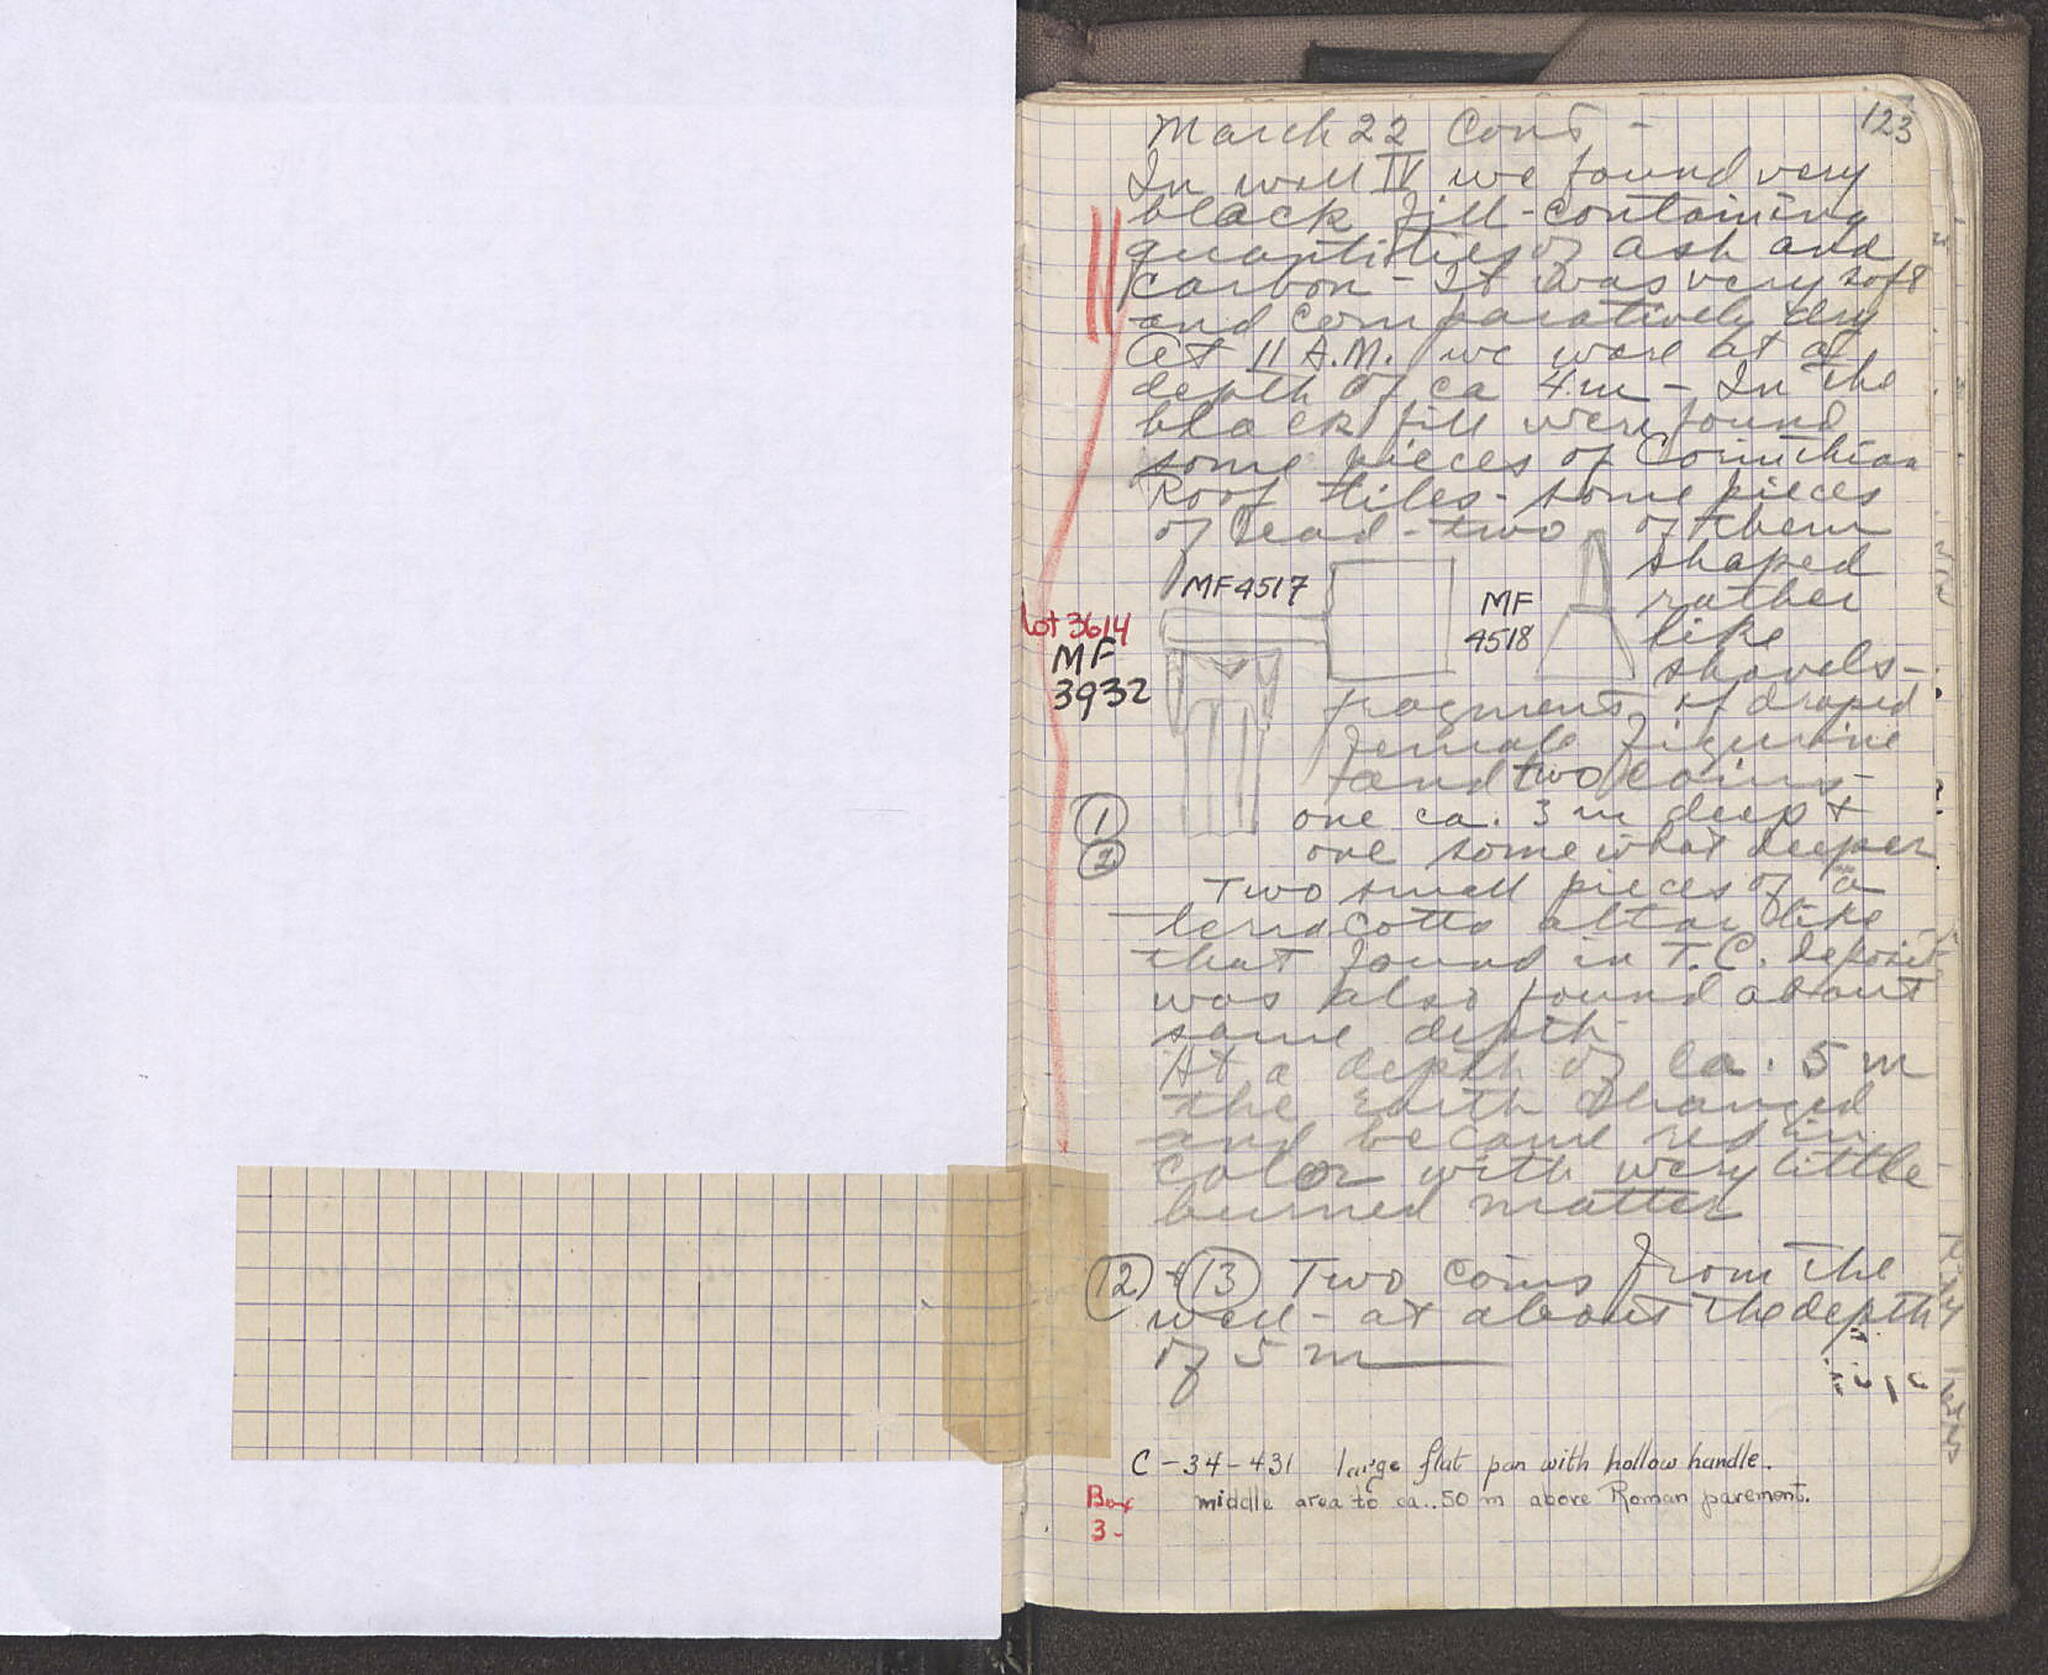 123
March 22 Cont -
In well IV we found very
black fill - containing
quantities of ash and
carbon - It was very soft
and comparatively dry
At 11 A.M. we were at a
depth of ca 4 m - In the
black fill were found
some pieces of Corinthian
Roof tiles - some pieces
of lead - two of them
shaped
rather
like
shovels -
MF 4517
MF
4518
Lot 3614
MF
3932
fragment of draped
female figurine
and two coins -
① one ca. 3 m deep +
② one somewhat deeper
Two small pieces of a
terracotta altar like
that found in T.C. deposit
was also found about
same depth
At a depth of ca. 5 m
the earth changed
and became red in
color with very little
burned matter
⑫ + ⑬ Two coins from the
well - at about the depth
of 5 m
C - 34 - 431 large flat pan with hollow handle.
middle area to ca. .50 m above Roman pavement.
Box
3 -